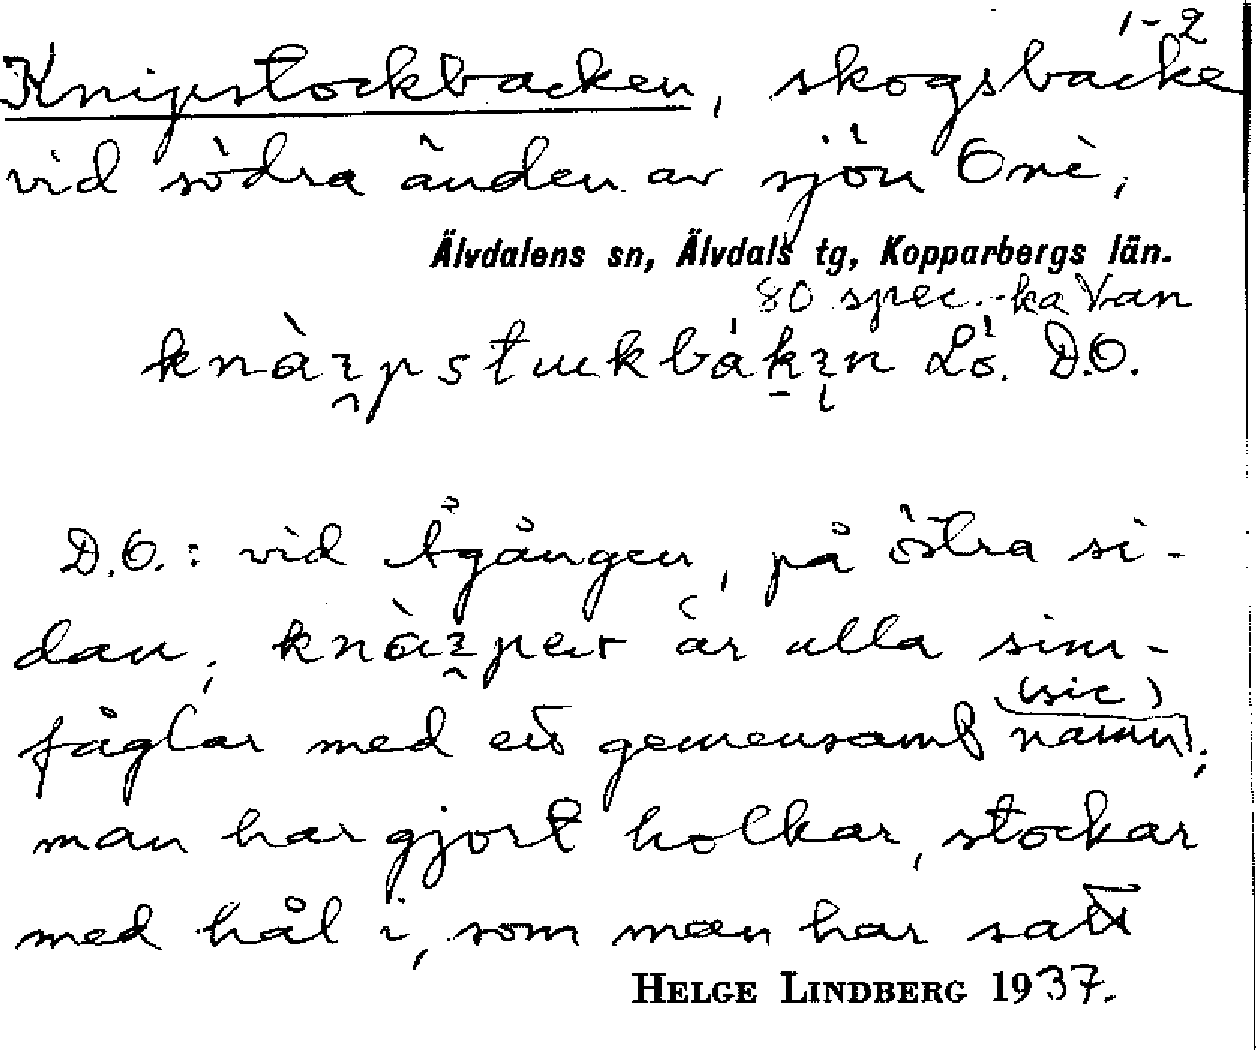 1-2
Knipstockbacken, skogsbacke
vid södra änden av sjön Orre,
Älvdalens sn, Älvdals tg, Kopparbergs län.
80 spec. ka Van
D.O.
D.O.: vid Ågången, på östra si-
dan, är alla sim-
fåglar med ett gemensamt (sic) namn;
man har gjort holkar, stockar
med hål i, som man har satt
HELGE LINDBERG 1937.